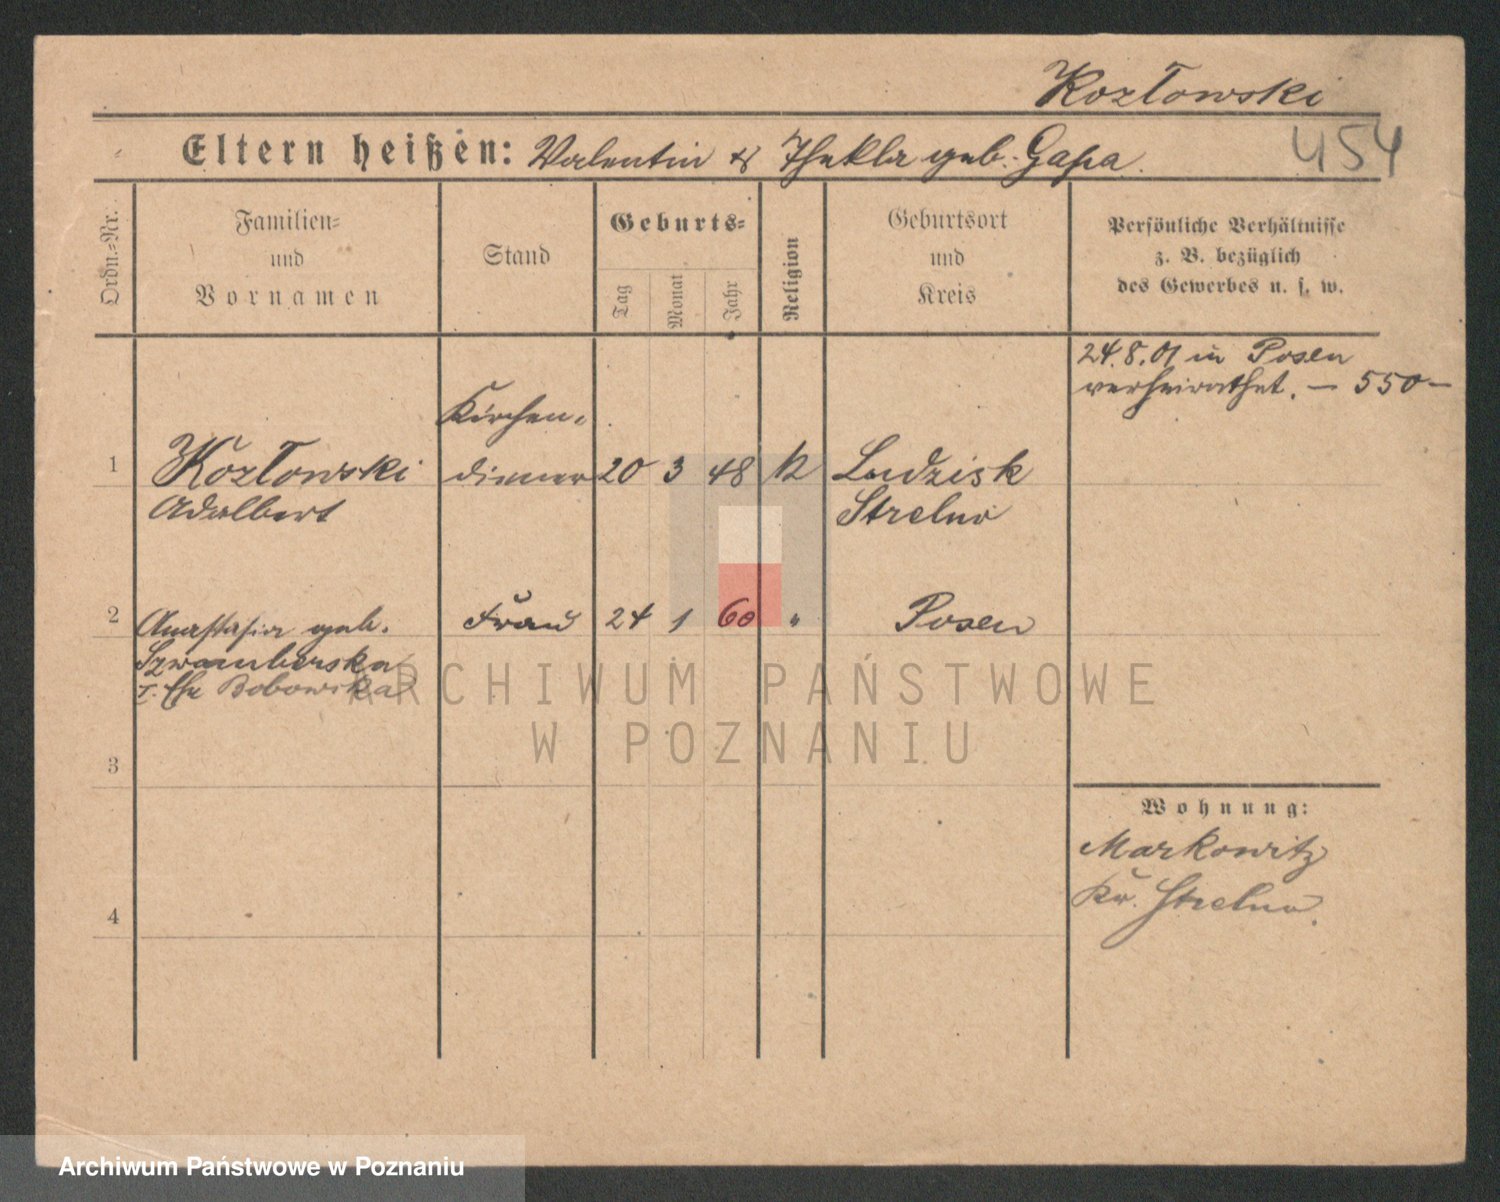 Kozłowski
454
Eltern heißen: Valentin & Thekla geb. Gapa.
Ordn.=Nr.
Familien=
und
Vornamen
Stand
Geburts=
Tag
Monat
Jahr
Religion
Geburtsort
und
Kreis
Persönliche Verhältnisse
z. B. bezüglich
des Gewerbes u. s. w.
24.8.01 in Posen
verheirathet. — 550 —
Kirchen-
1 Kozłowski diener 20 3 48 K Ludzisk
Adalbert Strelno
2 Anastasia geb. Frau 24 1 60 " Posen
Szwamberska
I. Ehe Bobowska
ARCHIWUM PAŃSTWOWE
W POZNANIU
3
Wohnung:
Markowitz
Kr. Strelno.
4
Archiwum Państwowe w Poznaniu